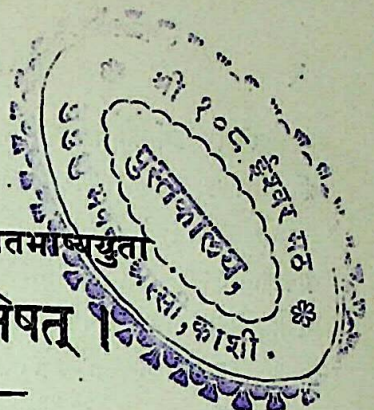 श्री १०८ ईश्वर मठ
पुस्तकालय,
अस्सी, काशी.
तभाष्ययुता
नेषत् ।